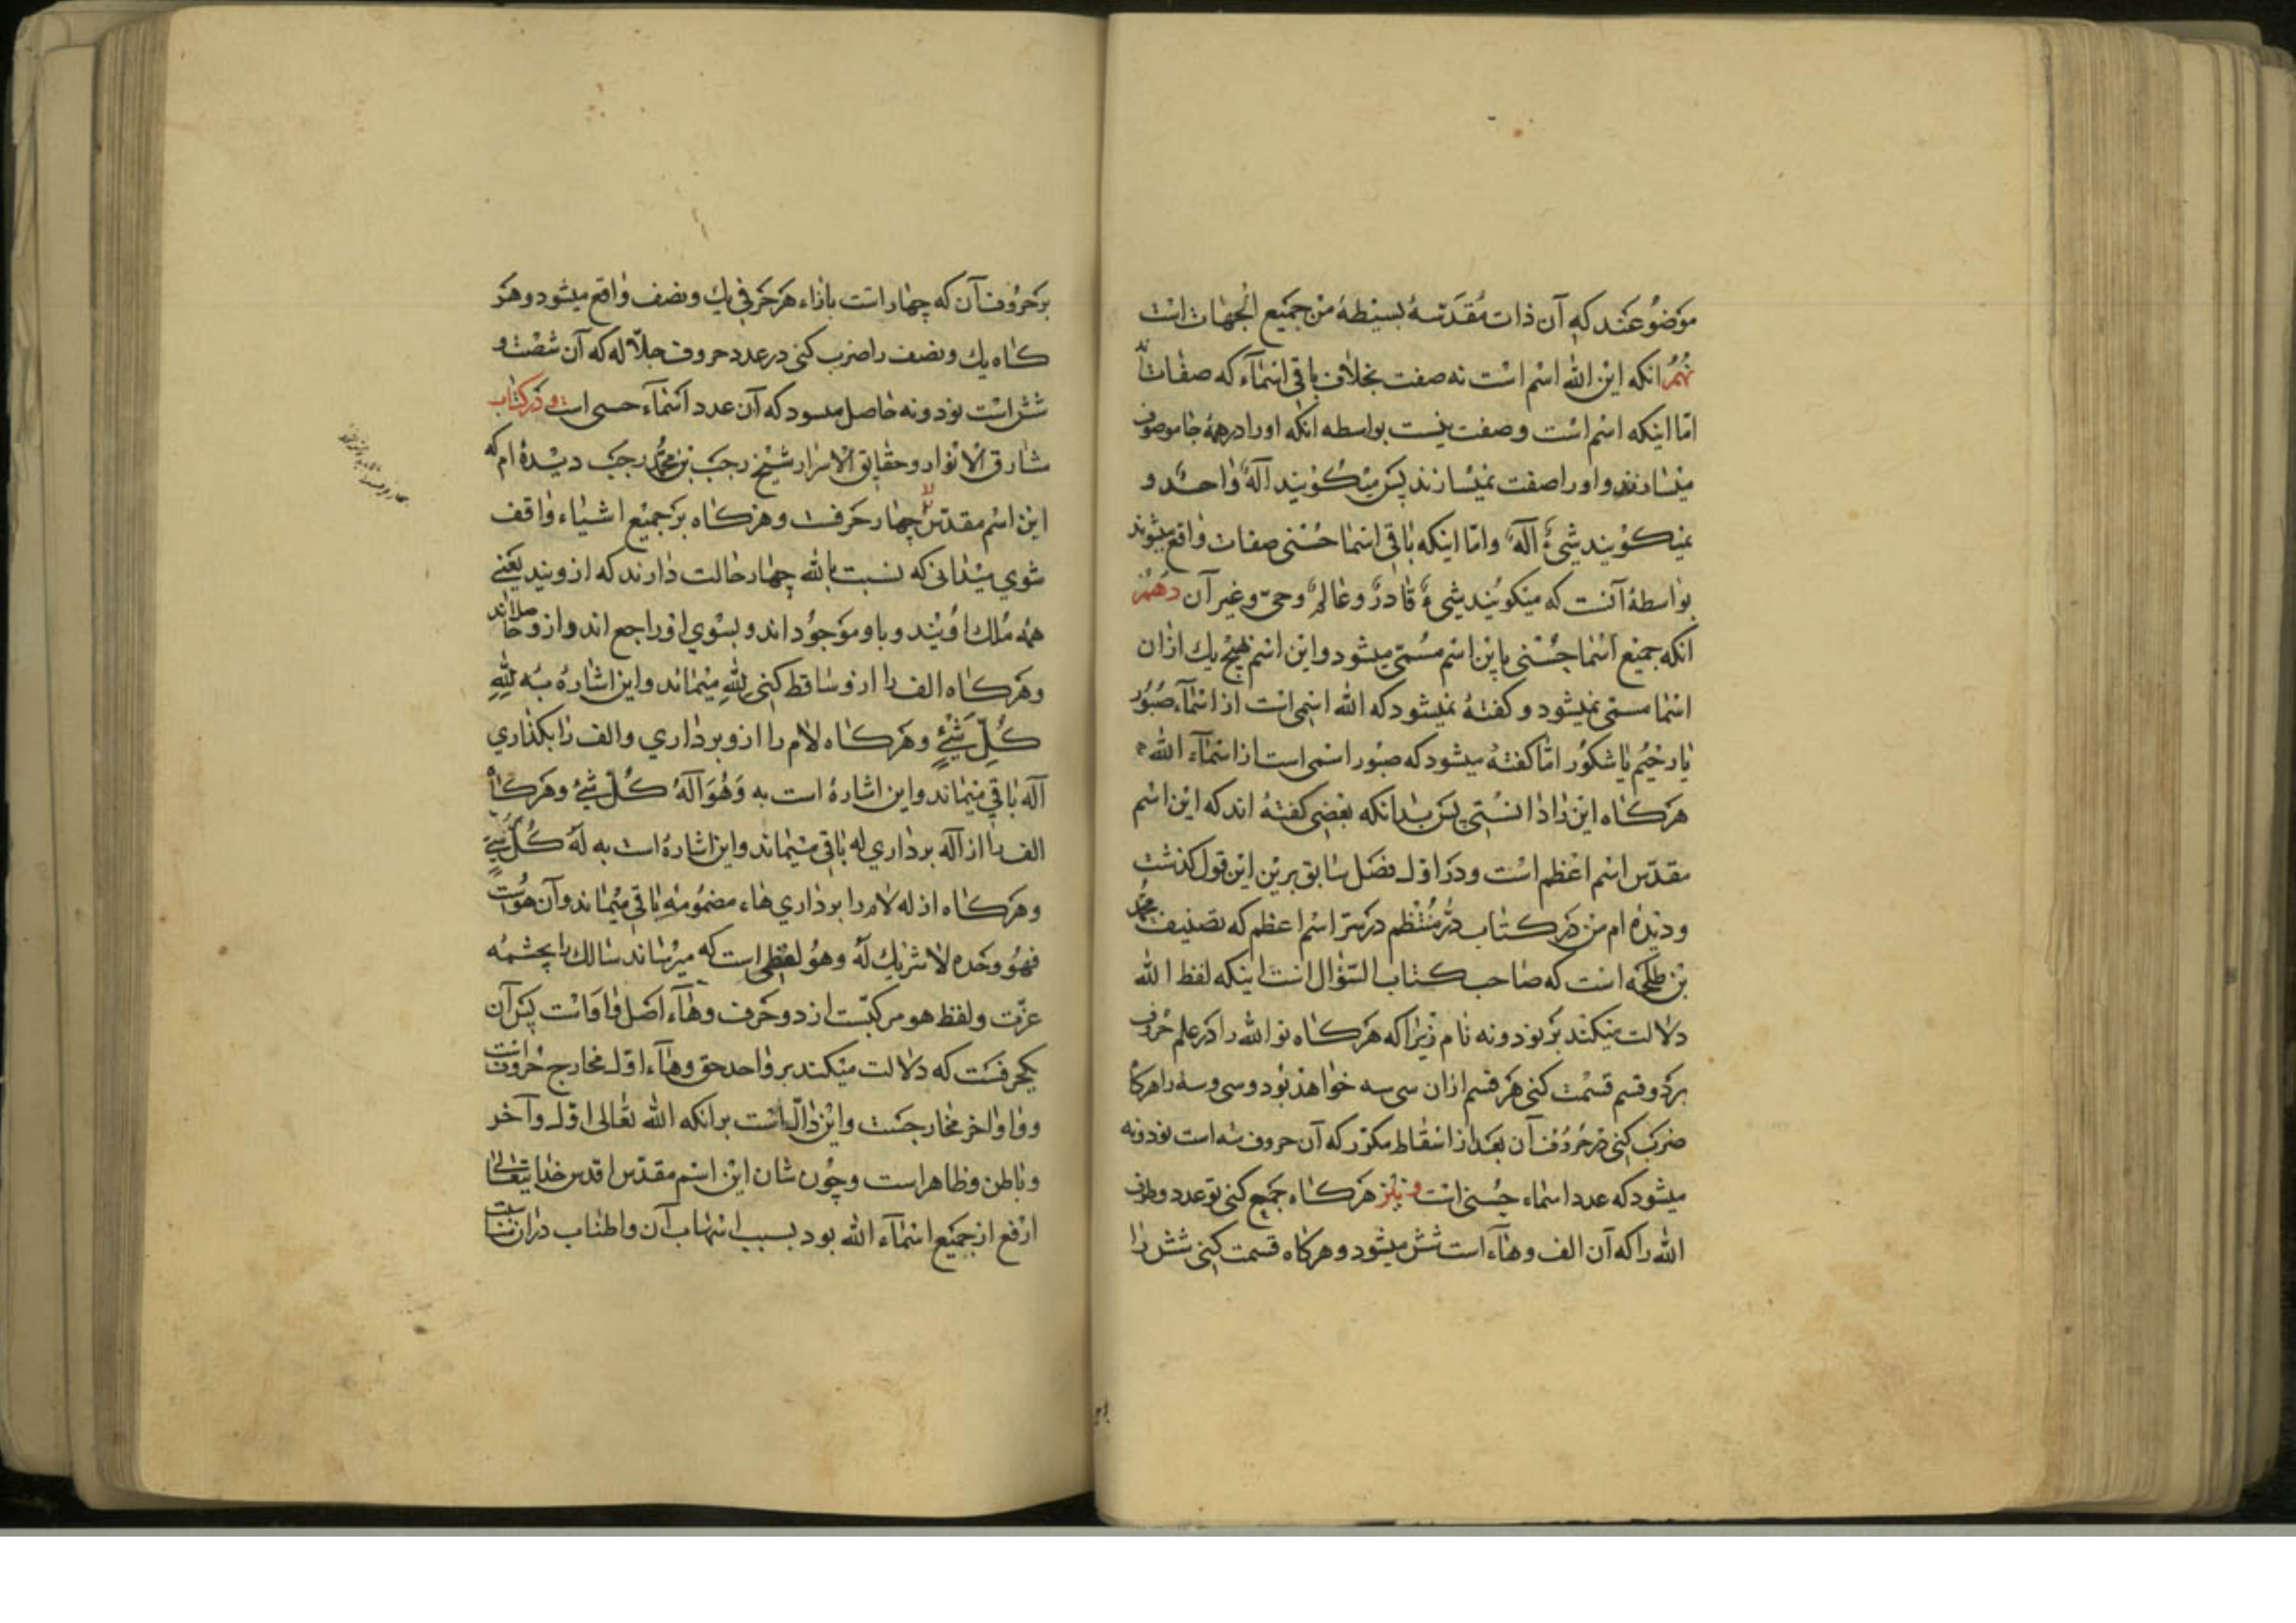 موضوع عند که آن ذات مقدسهٔ بسیطهٔ من جمیع الجهات است
نهم انکه این الله اسم است نه صفت بخلاف باقی اسماء که صفات‌اند
امّا اینکه اسم است و صفت نیست بواسطه انکه او را در همهٔ جا موصوف
میسازند و او را صفت نمیسازند پس میگویند آلهٌ واحدٌ و
نمیگویند شیءٌ آلهٌ و امّا اینکه باقی اسما حسنی صفات واقع میشوند
بواسطهٔ آنست که میگویند شیءٌ قادرٌ و عالمٌ و حیّ و غیر آن دهم
انکه جمیع اسما حسنی باین اسم مسمّی میشود و این اسم هیچ یک ازان
اسما مسمّی نمیشود و گفتهٔ نمیشود که الله اسمی است از اسماء صبور
یا رحیم یا شکور امّا گفتهٔ میشود که صبور اسمی است از اسماء الله
هرکاه این را دانستی پس بدانکه بعضی گفتهٔ اند که این اسم
مقدّس اسم اعظم است و در اوّل فصل سابق برین این قول گذشت
و دیدهٔ ام من در کتاب درّ منتظم در سرّ اسم اعظم که تصنیف محمد
بن طلحه است که صاحب کتاب السّؤال است اینکه لفظ الله
دلالت میکند بر نود و نه نام زیرا که هرکاه تو الله را در علم حروف
بر دو قسم قسمت کنی هر قسم ازان سی سه خواهد بود و سی و سه را هرکاه
ضرب کنی در حروف آن بعد از اسقاط مکرّر که آن حروف سه است نود و نه
میشود که عدد اسماء حسنی است و نیز هرکاه جمع کنی تو عدد دو طرف
الله را که آن الف و هاء است شش میشود و هرکاه قسمت کنی شش را
بر حروف آن که چهار است بازاء هر حرفی یک و نصف واقع میشود و هر
کاه یک و نصف را ضرب کنی در عدد حروف جلاله که آن شصت و
شش است نود و نه حاصل میسود که آن عدد اسماء حسی است و در کتاب
مشارق الانوار و حقایق الاسرار شیخ رجب بن محمد رجب دیدهٔ ام که
این اسم مقدّس چهار حرفست و هرکاه بر جمیع اشیاء واقف
شوی میدانی که نسبت بالله چهار حالت دارند که ازویند یعنی
همه ملک اویند و باو موجود اند و بسوی او راجع اند و ازو
وهرکاه الف را ازو ساقط کنی لله میماند و این اشارهٔ به لله
کلّ شیءٍ و هرکاه لام را ازو برداری و الف را بگذاری
آله باقی میماند و این اشارهٔ است به وهو آله کلّ شیءٍ و هرکاه
الف را از آله برداری له باقی میماند و این اشارهٔ است به له کلّ شیءٍ
و هرکاه از له لام را برداری هاء مضمومه باقی میماند و آن هوست
فهو وحده لا شریک له و هو لفظی است که میرساند سالک را بچشمهٔ
عزّت و لفظ هو مرکبست از دو حرف و هاء اصل واو است پس آن
یکحرفست که دلالت میکند بر واحد حق و هاء اوّل مخارج حروف است
و واو اخر مخارجست و این دالّ است بر انکه الله تعالی اوّل و آخر
و باطن و ظاهر است و چون شان این اسم مقدّس اقدس خدایتعالی
ارفع از جمیع اسماء الله بود بسبب اسهاب آن و اطناب دران